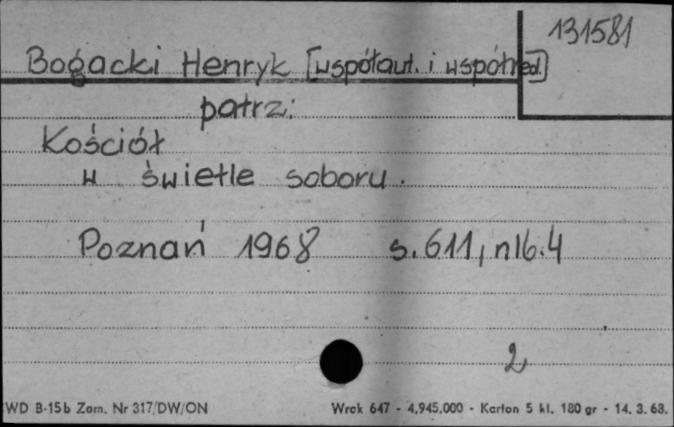 131581
Bogacki Henryk [współaut. i współred.]
patrz:
Kościół
w świetle soboru.
Poznań 1968 s. 611, nlb. 4
2
WD B-15b Zam. Nr 317/DW/ON Wrok 647 - 4,945.000 - Karton 5 kl. 180 gr - 14. 3. 68.